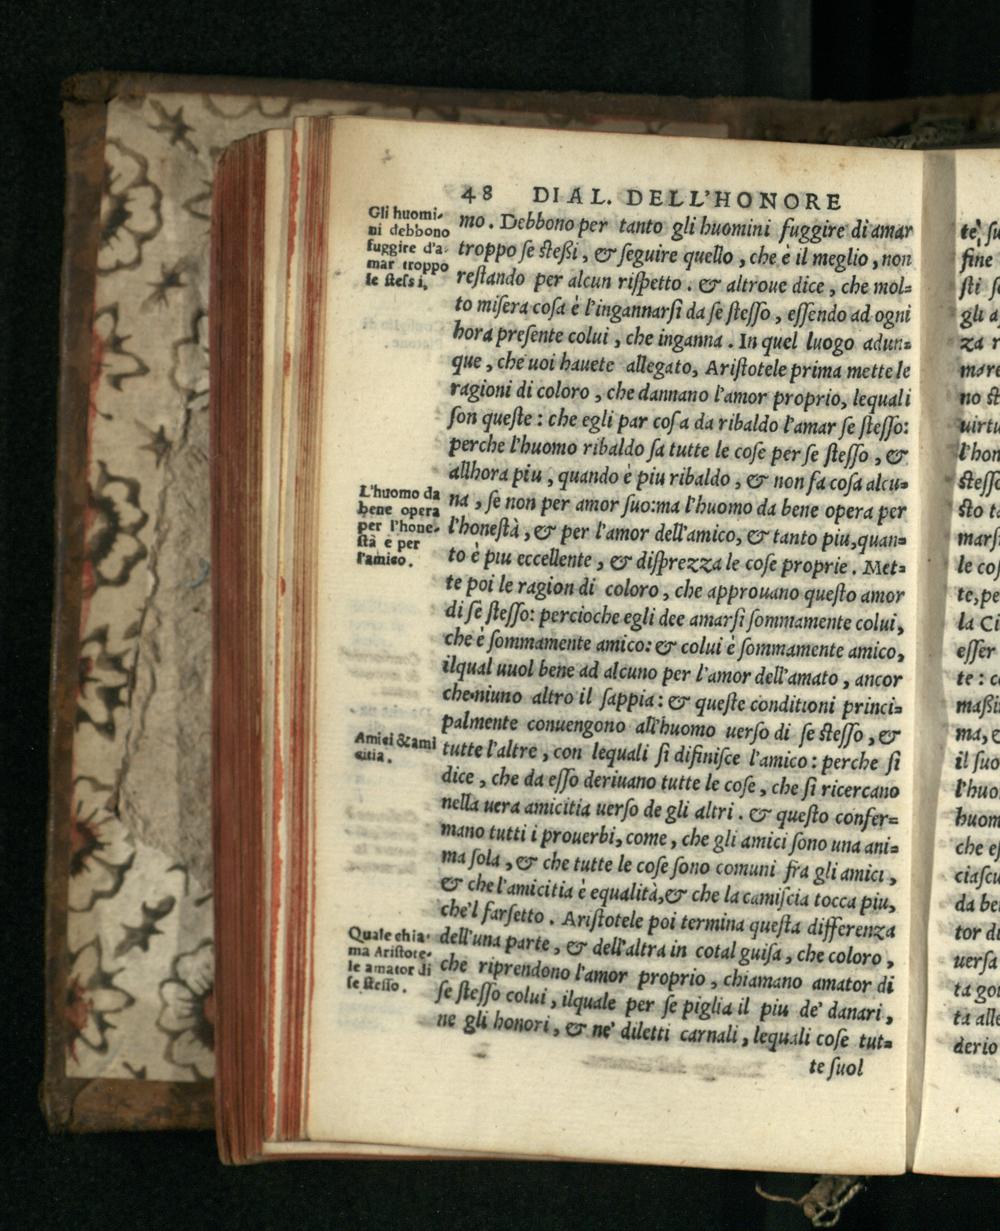 48 DIAL. DELL'HONORE
Gli huomi-
ni debbono
fuggire d'a-
mar troppo
se stessi,
mo. Debbono per tanto gli huomini fuggire di amar
troppo se steßi, & seguire quello, che è il meglio, non
restando per alcun rispetto. & altroue dice, che mol=
to misera cosa è l'ingannarsi da se stesso, essendo ad ogni
hora presente colui, che inganna. In quel luogo adun=
que, che uoi hauete allegato, Aristotele prima mette le
ragioni di coloro, che dannano l'amor proprio, lequali
son queste: che egli par cosa da ribaldo l'amar se stesso:
perche l'huomo ribaldo fa tutte le cose per se stesso, &
allhora piu, quando è piu ribaldo, & non fa cosa alcu=
L'huomo da
bene opera
per l'hone-
stà e per
l'amico.
na, se non per amor suo:ma l'huomo da bene opera per
l'honestà, & per l'amor dell'amico, & tanto piu,quan=
to è piu eccellente, & disprezza le cose proprie. Met=
te poi le ragion di coloro, che approuano questo amor
di se stesso: percioche egli dee amarsi sommamente colui,
che è sommamente amico: & colui è sommamente amico,
ilqual uuol bene ad alcuno per l'amor dell'amato, ancor
che niuno altro il sappia: & queste conditioni princi=
palmente conuengono all'huomo uerso di se stesso, &
Amici & ami
citia.
tutte l'altre, con lequali si difinisce l'amico: perche si
dice, che da esso deriuano tutte le cose, che si ricercano
nella uera amicitia uerso de gli altri. & questo confer=
mano tutti i prouerbi, come, che gli amici sono una ani=
ma sola, & che tutte le cose sono comuni fra gli amici,
& che l'amicitia è equalità,& che la camiscia tocca piu,
che'l farsetto. Aristotele poi termina questa differenza
Quale chia-
ma Aristote-
le amator di
se stesso.
dell'una parte, & dell'altra in cotal guisa, che coloro,
che riprendono l'amor proprio, chiamano amator di
se stesso colui, ilquale per se piglia il piu de' danari,
ne gli honori, & ne' diletti carnali, lequali cose tut=
te suol
te, su
fine
sti se
gli a
za r
mare
no st
uirtu
l'hon
stesso
sto ta
marsi
le cos
te,pe
la Ci
esser
te: co
maßi
ma, &
il suo
l'huo
huom
che es
ciascu
da be
tor di
uersa
ta go
ta alle
derio